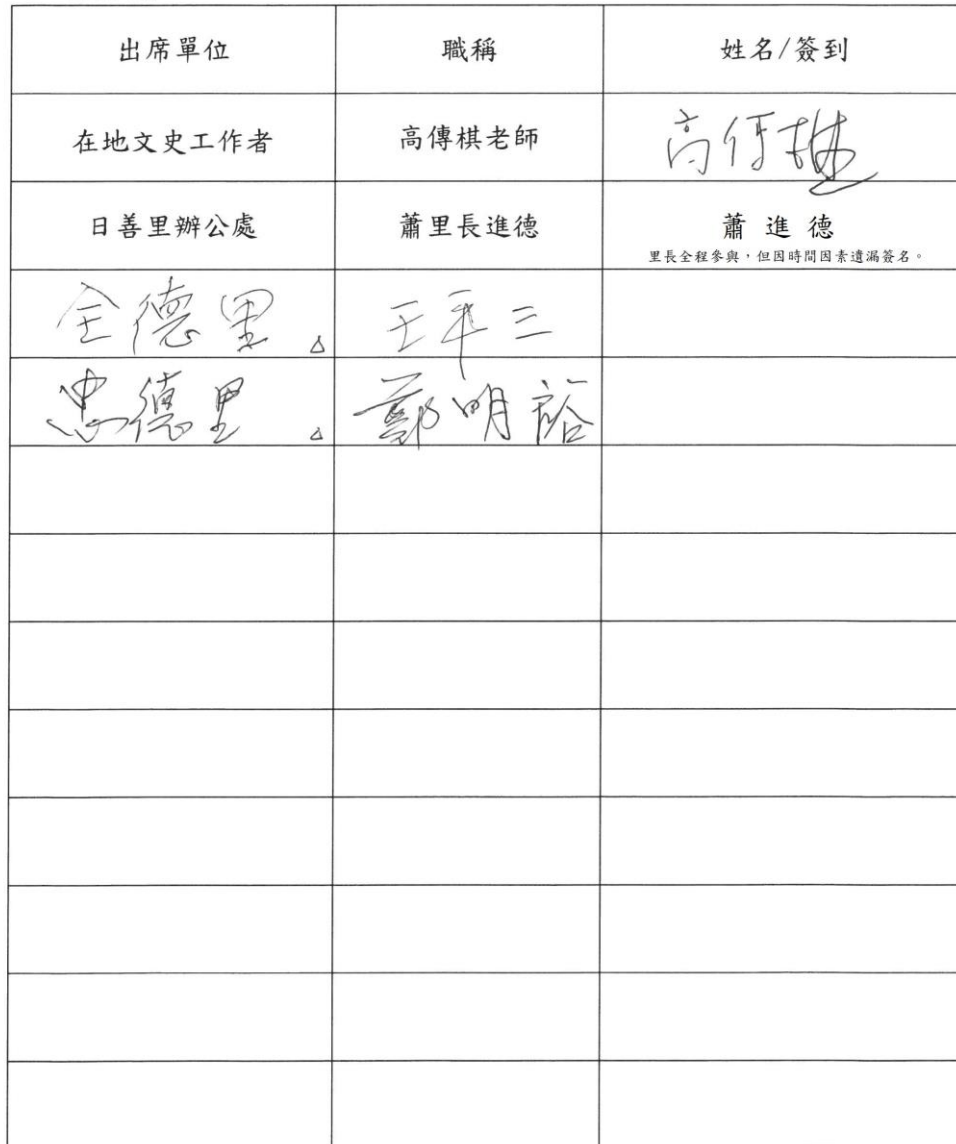 出席單位 職稱 姓名/簽到
在地文史工作者 高傳棋老師 高傳棋
日善里辦公處 蕭里長進德 蕭進德
里長全程參與，但因時間因素遺漏簽名。
全德里 王平三
忠德里 鄭明裕